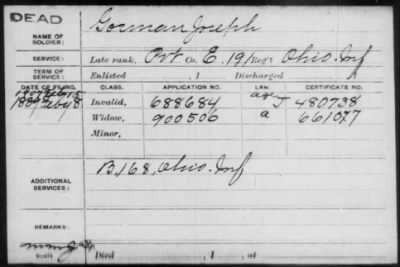 DEAD
NAME OF SOLDIER:
Gorman Joseph
SERVICE:
Late rank, Pvt Co. E, 191 Reg't Ohio Inf
TERM OF SERVICE:
Enlisted , 1 Discharged
DATE OF FILING. CLASS. APPLICATION NO. LAW. CERTIFICATE NO.
Invalid, 688684 J 480738
Widow, 900506 a 661077
Minor,
ADDITIONAL SERVICES:
B, 168, Ohio Inf
REMARKS:
Died , 1 , at